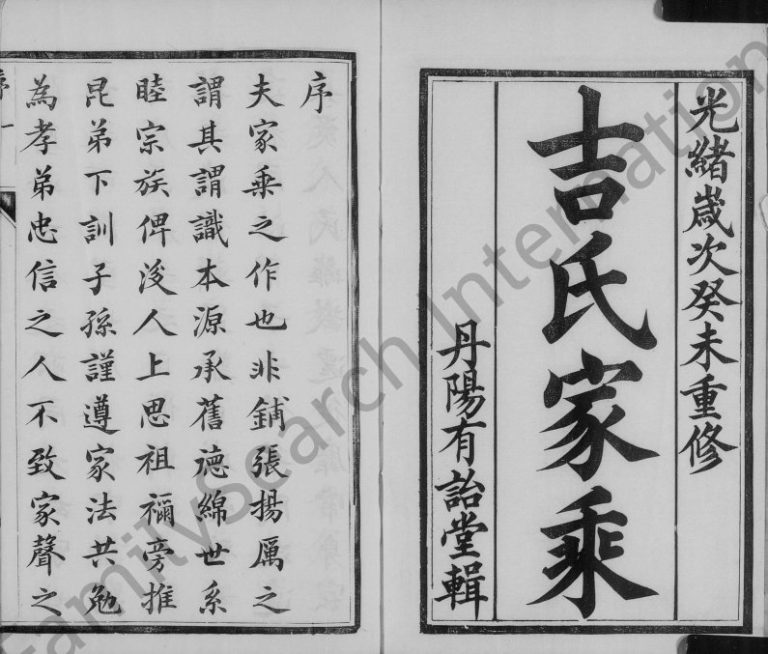 光緒歲次癸未重修
吉氏家乘
丹陽有詒堂輯
序
夫家乘之作也非鋪張揚厲之
謂其謂識本源承舊德綿世系
睦宗族俾後人上思祖禰旁推
昆弟下訓子孫謹遵家法共勉
為孝弟忠信之人不致家聲之
序 一
FamilySearch International